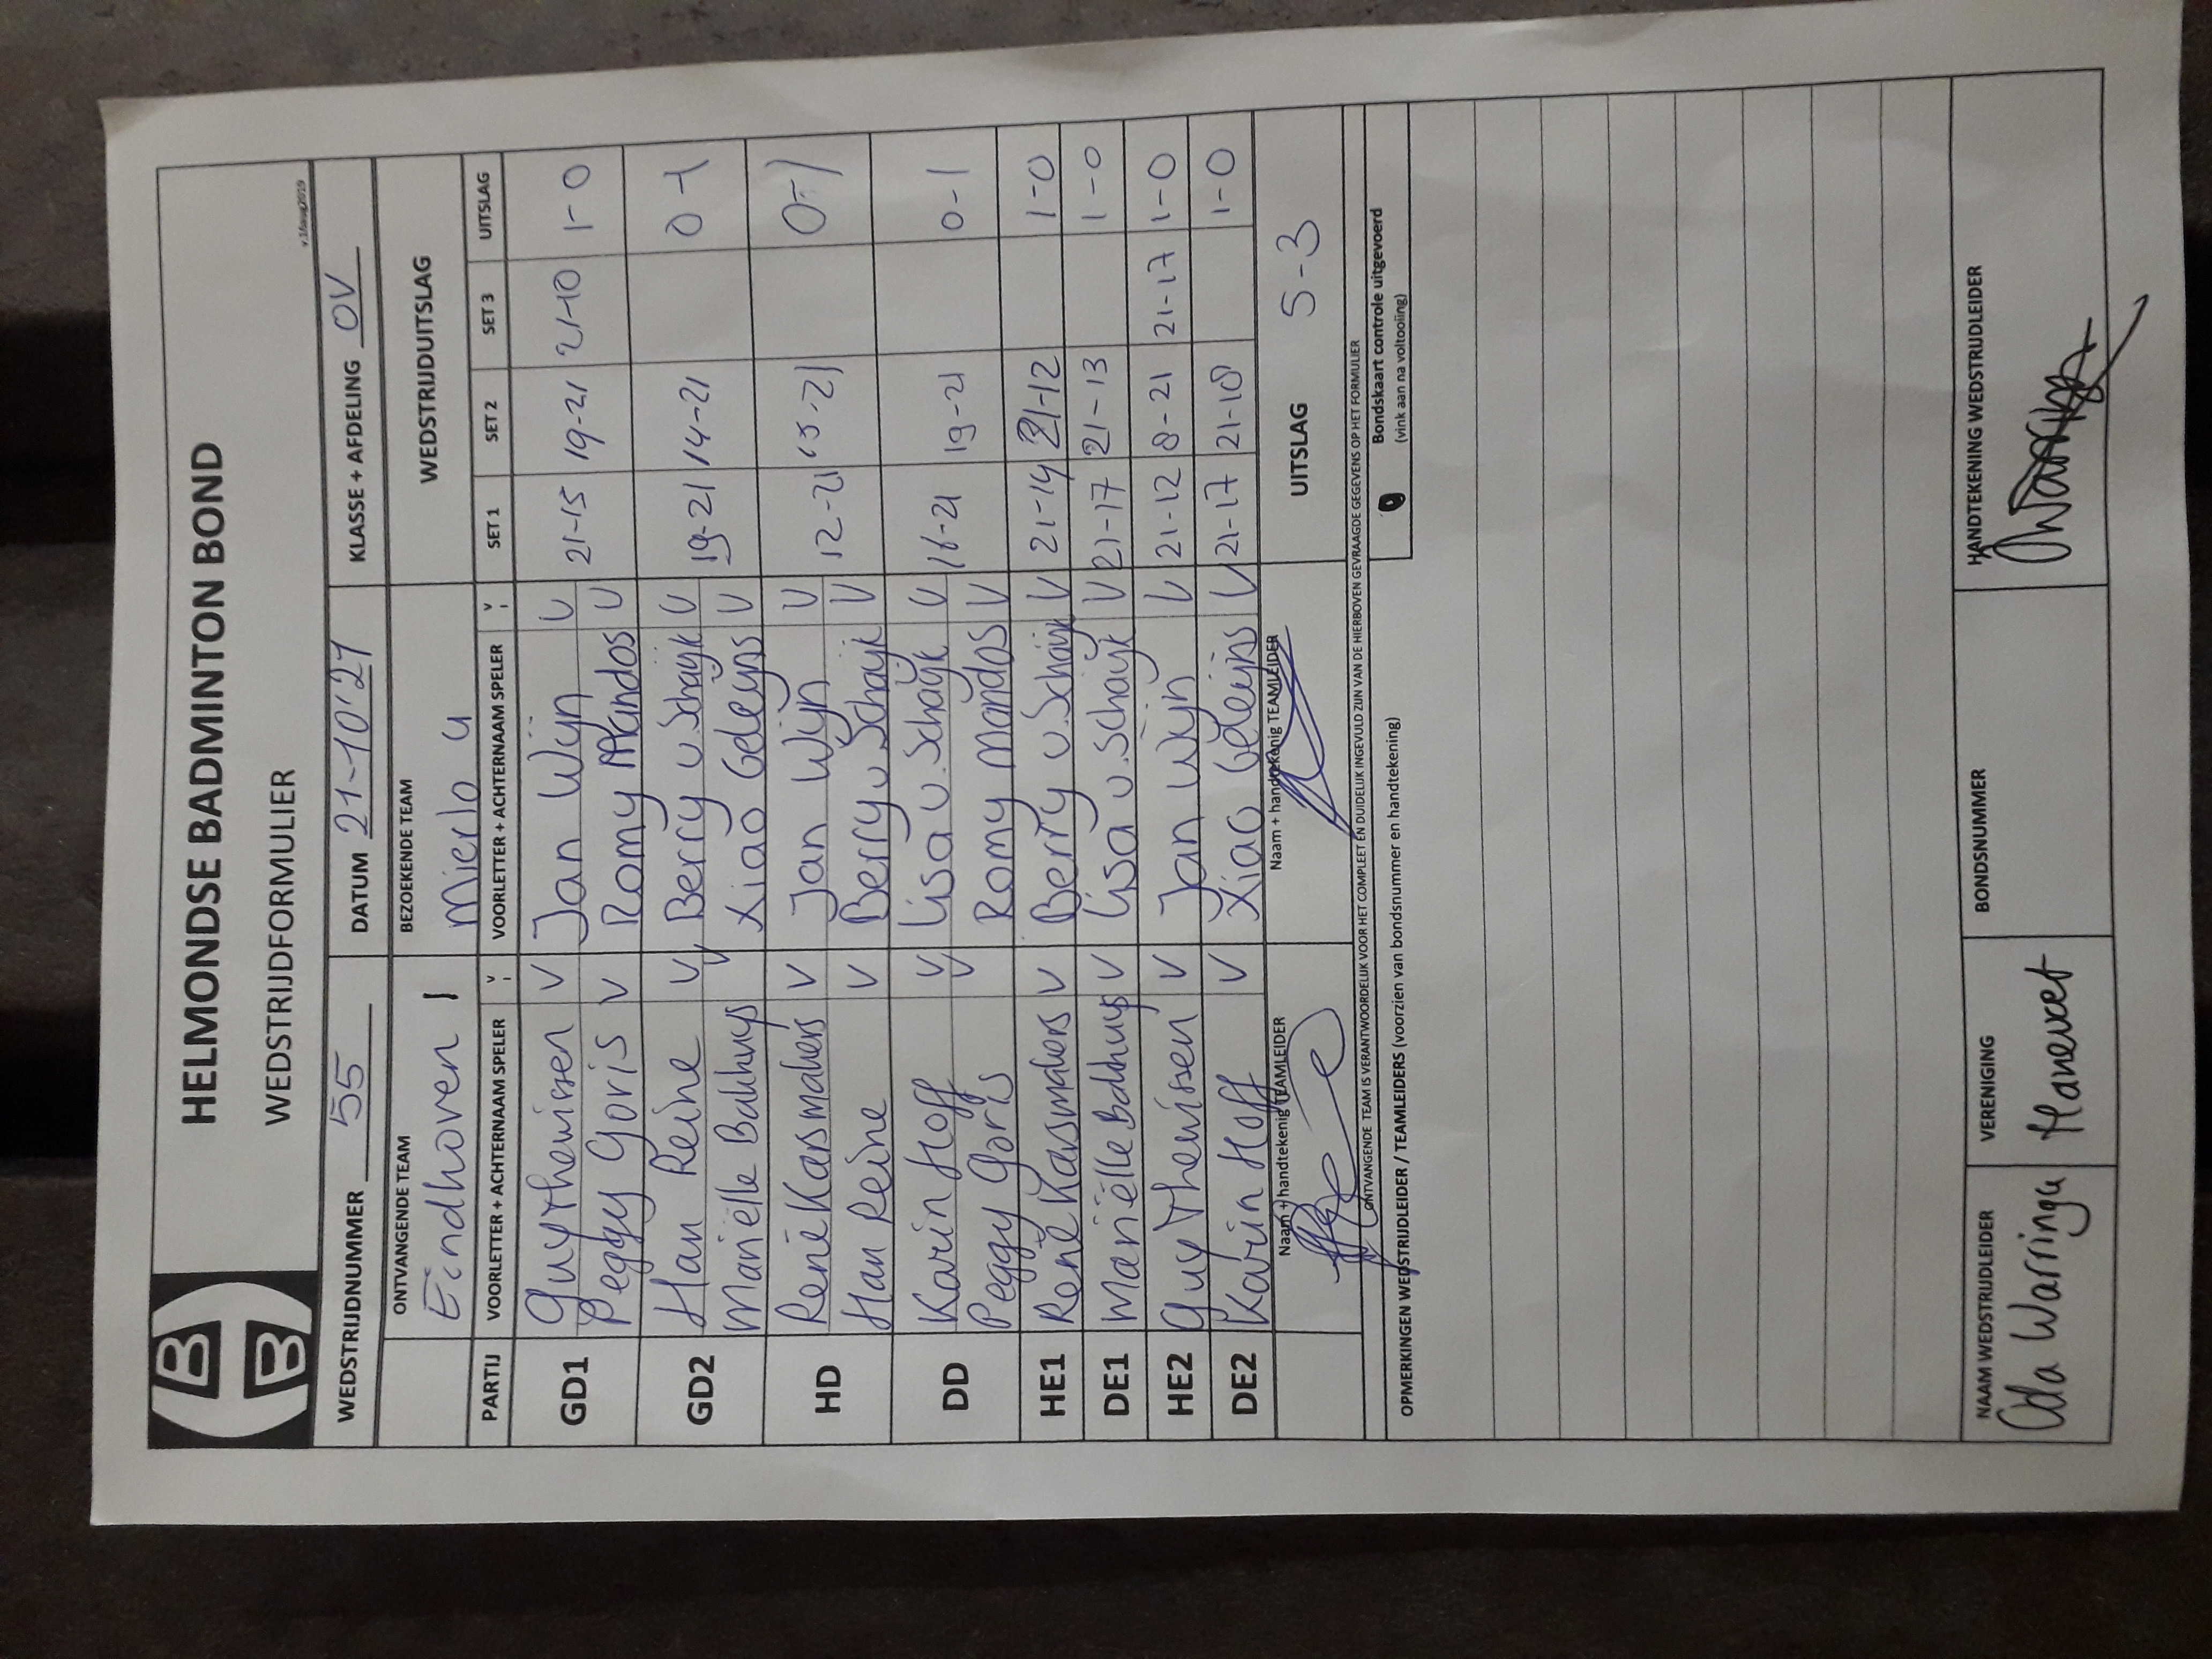 HELMONDSE BADMINTON BOND
WEDSTRIJDFORMULIER
v.16aug2019
WEDSTRIJDNUMMER 55 DATUM 21-10'21 KLASSE + AFDELING OV
ONTVANGENDE TEAM BEZOEKENDE TEAM WEDSTRIJDUITSLAG
Eindhoven 1 Mierlo 4
PARTIJ VOORLETTER + ACHTERNAAM SPELER V VOORLETTER + ACHTERNAAM SPELER V SET 1 SET 2 SET 3 UITSLAG
GD1 Guy Thewissen V Jan Wijn V 21-15 19-21 21-10 1-0
Peggy Goris V Romy Mandos V
GD2 Han Reine V Berry v. Schaijk V 19-21 14-21 0-1
Mariëlle Bakhuys V Xiao Geleijns V
HD René Karsmakers V Jan Wijn V 12-21 15-21 0-1
Han Reine V Berry v. Schaijk V
DD Karin Hoff V Lisa v. Schaijk V 16-21 19-21 0-1
Peggy Goris V Romy Mandos V
HE1 René Karsmakers V Berry v. Schaijk V 21-14 21-12 1-0
DE1 Mariëlle Bakhuys V Lisa v. Schaijk V 21-17 21-13 1-0
HE2 Guy Thewissen V Jan Wijn V 21-12 8-21 21-17 1-0
DE2 Karin Hoff V Xiao Geleijns V 21-17 21-18 1-0
Naam + handtekenig TEAMLEIDER Naam + handtekenig TEAMLEIDER UITSLAG 5-3
ONTVANGENDE TEAM IS VERANTWOORDELIJK VOOR HET COMPLEET EN DUIDELIJK INGEVULD ZIJN VAN DE HIERBOVEN GEVRAAGDE GEGEVENS OP HET FORMULIER
OPMERKINGEN WEDSTRIJDLEIDER / TEAMLEIDERS (voorzien van bondsnummer en handtekening) Bondskaart controle uitgevoerd
(vink aan na voltooiing)
NAAM WEDSTRIJDLEIDER VERENIGING BONDSNUMMER HANDTEKENING WEDSTRIJDLEIDER
Oda Warringa Hanevoet